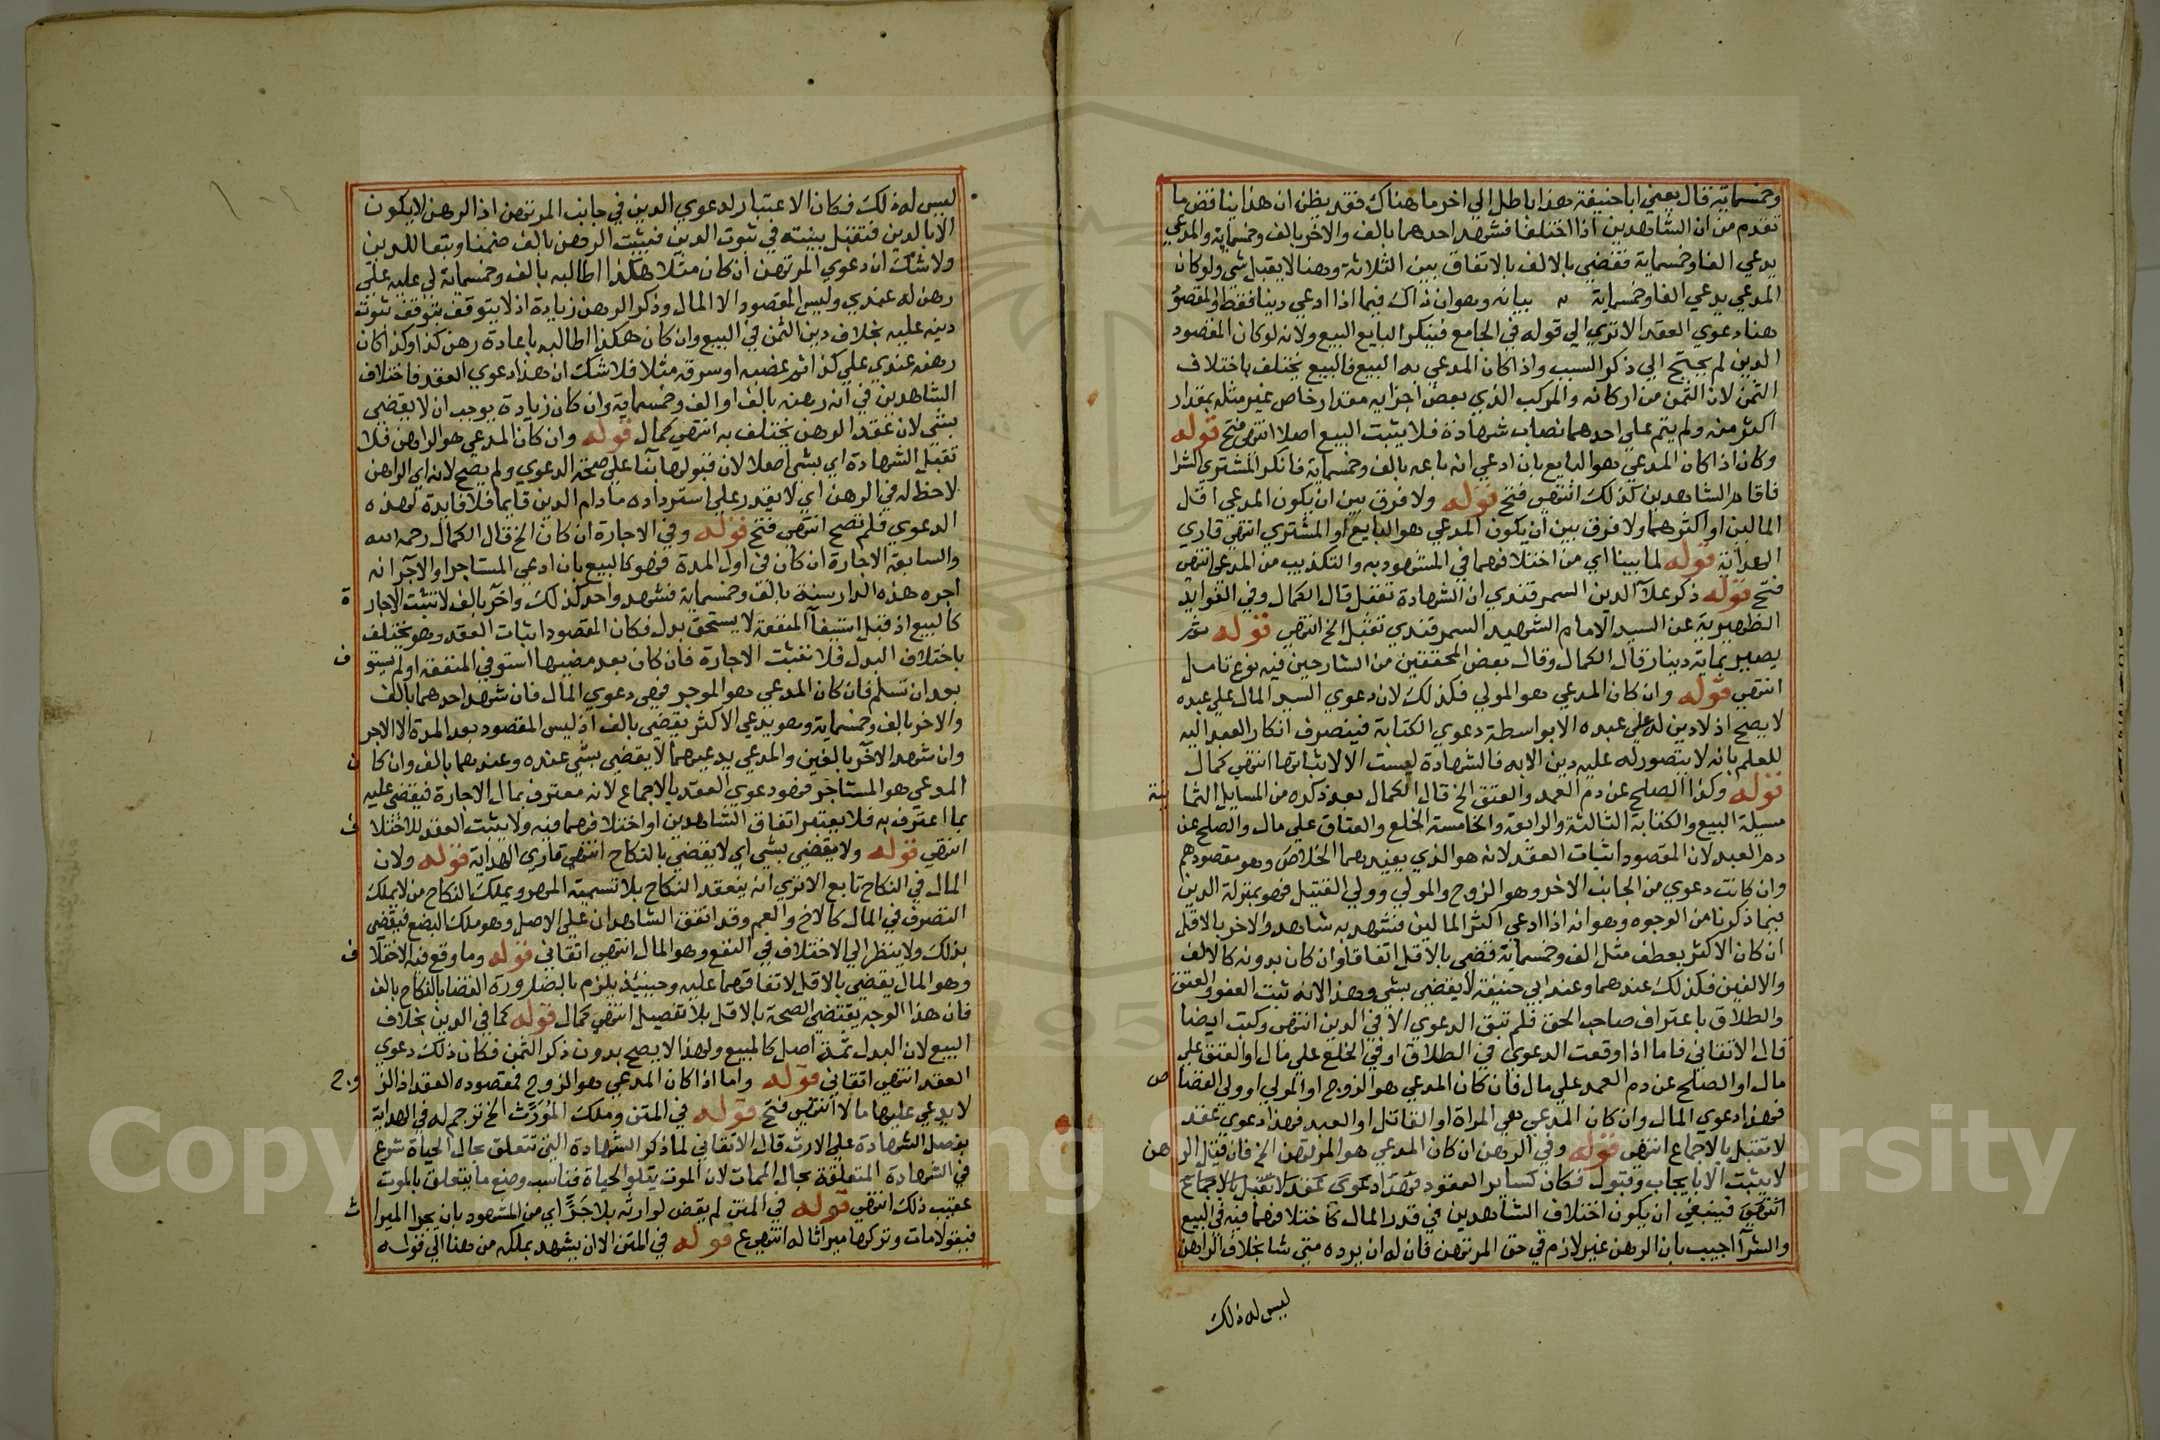 وخمسماية قال يعني ابا حنيفة هذا باطل الي اخر ما هناك فقد يظن ان هذا يناقض ما
تقدم من ان الشاهدين اذا اختلفا فشهد احدهما بالف والاخر بالف وخمسماية والمدعي
يدعي الفا وخمسماية فقضي بالالف بالاتفاق بين الثلاثة وهنا لا يقبل شي ولو كان
المدعي يدعي الفا وخمسماية بيانه وهو ان ذاك فيما اذا ادعي دينا فقط والمقصود
هنا دعوي العقد الا تري الي قوله في الجامع فينكر البايع البيع ولانه لو كان المقصود
الدين لم يحتج الي ذكر السبب واذا كان المدعي به البيع فالبيع يختلف باختلاف
الثمن لان الثمن من اركانه والمركب الذي بعض اجزايه مقدار خاص غير مثله بمقدار
اكثر منه ولم يتم علي احدهما نصاب شهادة فلا يثبت البيع اصلا انتهي فتح قوله
وكان اذا كان المدعي هو البايع بان ادعي انه باعه بالف وخمسماية فانكر المشتري الشرا
فاقام الشاهدين كذلك انتهي فتح قوله ولا فرق بين ان يكون المدعي اقل
المالين او اكثرهما ولا فرق بين ان يكون المدعي هو البايع او المشتري انتهي قاري
الهداية قوله لما بينا اي من اختلافهما في المشهود به والتكذيب من المدعي انتهي
فتح قوله ذكر علآ الدين السمرقندي ان الشهادة تقبل قال الكمال وفي الفوايد
الظهيرية عن السيد الامام الشهيد السمرقندي تقبل الخ انتهي قوله ثم
يصير بماية دينار قال الكمال وقال بعض المحققين من الشارحين فيه نوع تامل
انتهي قوله وان كان المدعي هو المولي فكذلك لان دعوي السيد المال علي عبده
لا يصح اذ لا دين له علي عبده الا بواسطة دعوي الكتابة فينصرف انكار العبد اليه
للعلم بانه لا يتصور له عليه دين الا به فالشهادة ليست الا لاثباتها انتهي كمال
قوله وكذا الصلح عن دم العمد والعتق الخ قال الكمال بعد ذكره من المسايل الثمانية
مسيلة البيع والكتابة الثالثة والرابعة والخامسة الخلع والعتاق علي مال والصلح عن
دم العبد لان المقصود اثبات العقد لانه هو الذي يفيدهما الخلاص وهو مقصودهم
وان كانت دعوي من الجانب الاخر وهو الزوج والمولي وولي القتيل فهو بمنزلة الدين
فيما ذكرنا من الوجوه وهو انه اذا ادعي اكثر المالين فشهد به شاهد والاخر بالاقل
ان كان الاكثر بعطف مثل الف وخمسماية قضي بالاقل اتفاقا وان كان بدونه كالالف
والالفين فكذلك عندهما وعند ابي حنيفة لا يقضي بشي وهذا لانه ثبت العفو والعتق
والطلاق باعتراف صاحب الحق فلم تبق الدعوي الا في الدين انتهي وكتب ايضا
قال الاتقاني فاما اذا وقعت الدعوي في الطلاق او في الخلع علي مال او العتق علي
مال او الصلح عن دم العمد علي مال فان كان المدعي هو الزوج او المولي او ولي القصاص
فهذا دعوي المال وان كان المدعي هي المراة او القاتل او العبد فهذا دعوي عقد
لا تقبل بالاجماع انتهي قوله وفي الرهن ان كان المدعي هو المرتهن الخ فان قيل الرهن
لا يثبت الا بايجاب وقبول فكان كساير العقود فهذا دعوي عقد لا تقبل بالاجماع
انتهي فينبغي ان يكون اختلاف الشاهدين في قدر المال كاختلافهما فيه في البيع
والشرآ اجيب بان الرهن غير لازم في حق المرتهن فان له ان يرده متي شا بخلاف الراهن
ليس له ذلك
ليس له ذلك فكان الاعتبار لدعوي الدين في جانب المرتهن اذ الرهن لا يكون
الا بالدين فتقبل بينته في ثبوت الدين فيثبت الرهن بالف ضمنا وتبعا للدين
ولا شك ان دعوي المرتهن ان كان مثلا هكذا اطالبه بالف وخمسماية لي عليه علي
رهن له عندي وليس المقصود الا المال وذكر الرهن زيادة اذ لا يتوقف ثبوت
دينه عليه بخلاف دين الثمن في البيع وان كان هكذا اطالبه باعادة رهن كذا وكذا كان
رهنه عندي علي كذا ثم غصبه او سرقه مثلا فلا شك ان هذا دعوي العقد فاختلاف
الشاهدين في انه رهنه بالف او الف وخمسماية وان كان زيادة يوجب ان لا يقضي
بشي لان عقد الرهن يختلف به انتهي كمال قوله وان كان المدعي هو الراهن فلا
تقبل الشهادة اي بشي اصلا لان قبولها بنآ علي صحة الدعوي ولم يصح لانه اي الراهن
لا حظ له في الرهن اي لا يقدر علي استرداده ما دام الدين قايما فلا فايدة لهذه
الدعوي فلم تصح انتهي فتح قوله وفي الاجارة ان كان الخ قال الكمال رحمه الله
والسابعة الاجارة ان كان في اول المدة فهو كالبيع بان ادعي المستاجر او الآجر انه
اجره هذه الدار سنة بالف وخمسماية فشهد واحد كذلك وآخر بالف لا تثبت الاجارة
كالبيع اذ قبل استيفآ المنفعة لا يستحق بدل فكان المقصود اثبات العقد وهو يختلف
باختلاف البدل فلا تثبت الاجارة فان كان بعد مضيها استوفي المنفعة او لم يستوف
بعد ان تسلم فان كان المدعي هو الموجر فهي دعوي المال فان شهد احدهما بالف
والاخر بالف وخمسماية وهو يدعي الاكثر يقضي بالف اذ ليس المقصود بعد المدة الا الاجر
وان شهد الآخر بالفين والمدعي يدعيهما لا يقضي بشي عنده وعندهما بالف وان كان
المدعي هو المستاجر فهو دعوي العقد بالاجماع لانه معترف بمال الاجارة فيقضي عليه
بما اعترف به فلا يعتبر اتفاق الشاهدين او اختلافهما فيه ولا يثبت العقد للاختلاف
انتهي قوله ولا يقضي بشي اي لا يقضي بالنكاح انتهي قاري الهداية قوله ولان
المال في النكاح تابع الا تري انه ينعقد النكاح بلا تسمية المهر ويملك النكاح من لا يملك
التصرف في المال كالاخ والعم وقد اتفق الشاهدان علي الاصل وهو ملك البضع فيقضي
بذلك ولا ينظر الي الاختلاف في التبع وهو المال انتهي اتقاني قوله وما وقع فيه الاختلاف
وهو المال يقضي بالاقل لاتفاقهما عليه وحينيذ يلزم بالضرورة القضا بالنكاح بالف
فان هذا الوجه يقتضي الصحة بالاقل بلا تفصيل انتهي كمال قوله كما في الدين بخلاف
البيع لان البدل ثمة اصل كالمبيع ولهذا لا يصح بدون ذكر الثمن فكان ذلك دعوي
العقد انتهي اتقاني قوله واما اذا كان المدعي هو الزوج فمقصوده العقد اذ الزوج
لا يدعي عليها مالا انتهي فتح قوله في المتن وملك المورث الخ ترجم له في الهداية
بفصل الشهادة علي الارث قال الاتقاني لما ذكر الشهادة التي تتعلق بحال الحياة شرع
في الشهادة المتعلقة بحال الممات لان الموت يتلو الحياة فناسب وضع ما يتعلق بالموت
عقيب ذلك انتهي قوله في المتن لم يقض لوارثه بلا جر اي من الشهود بان يجرا الميراث
فيقولا مات وتركها ميراثا له انتهي ع قوله في المتن الا ان يشهد بملكه من هنا الي قوله